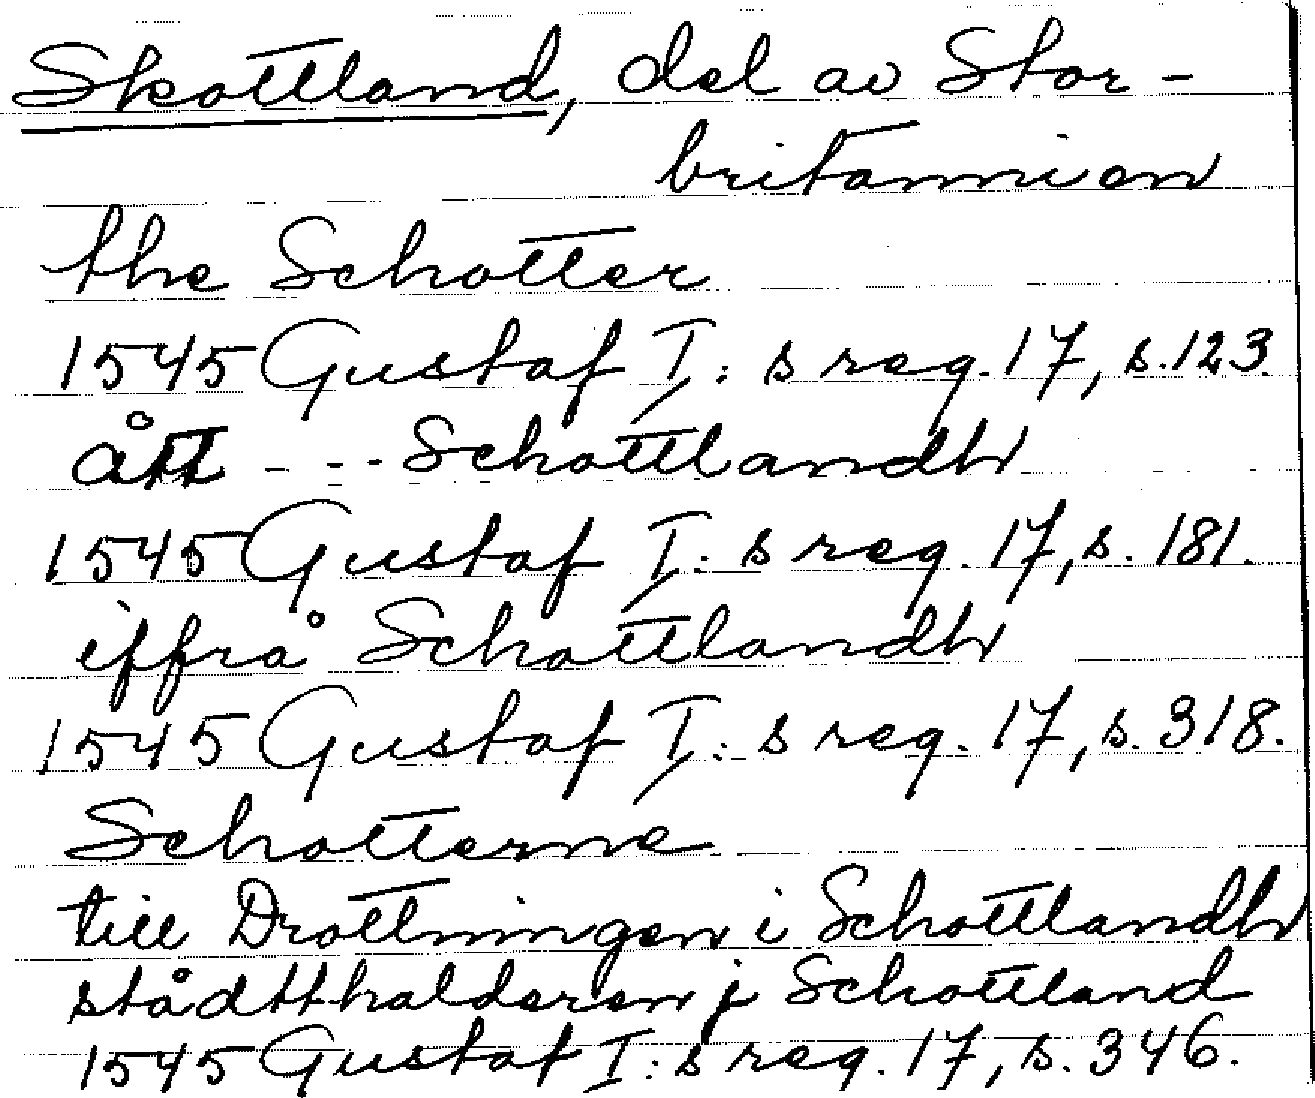 Skottland, del av Stor-
britannien
the Schotter
1545 Gustaf I:s reg. 17, s. 123.
ått - - - Schottlandh
1545 Gustaf I:s reg. 17, s. 181.
iffrå Schottlandh
1545 Gustaf I:s reg. 17, s. 318.
Schotterne
till Drottningen i Schottlandh
stådtthalderen j Schottland
1545 Gustaf I:s reg. 17, s. 346.